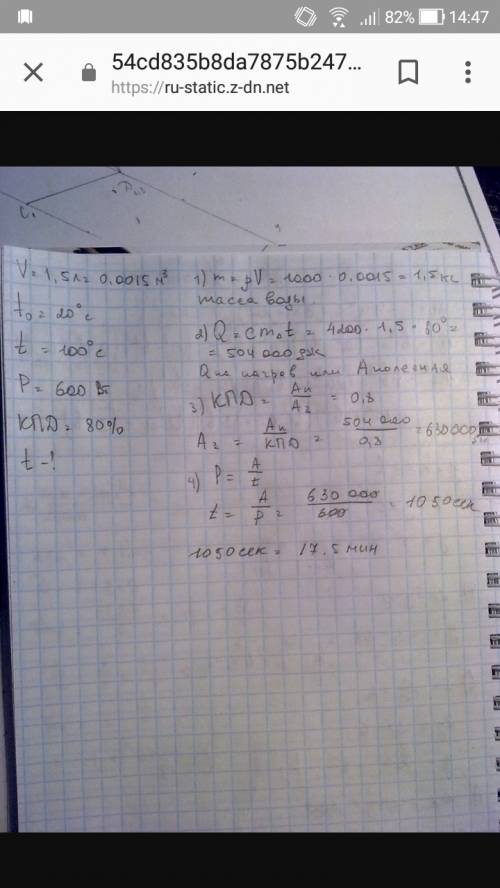 82% 14:47
54cd835b8da7875b247...
https://ru-static.z-dn.net
V = 1,5л = 0,0015 м³
t₀ = 20°c
t = 100°c
P = 600 Вт
КПД = 80%
t - ?
1) m = ρV = 1000 · 0,0015 = 1,5 кг
масса воды.
2) Q = cm△t = 4200 · 1,5 · 80° =
= 504 000 дж
Q на нагрев или А полезная
3) КПД = Aп / Aз = 0,8
Aз = Aп / КПД = 504 000 / 0,8 = 630000
4) P = A / t
t = A / P = 630 000 / 600 = 1050 сек
1050 сек = 17,5 мин